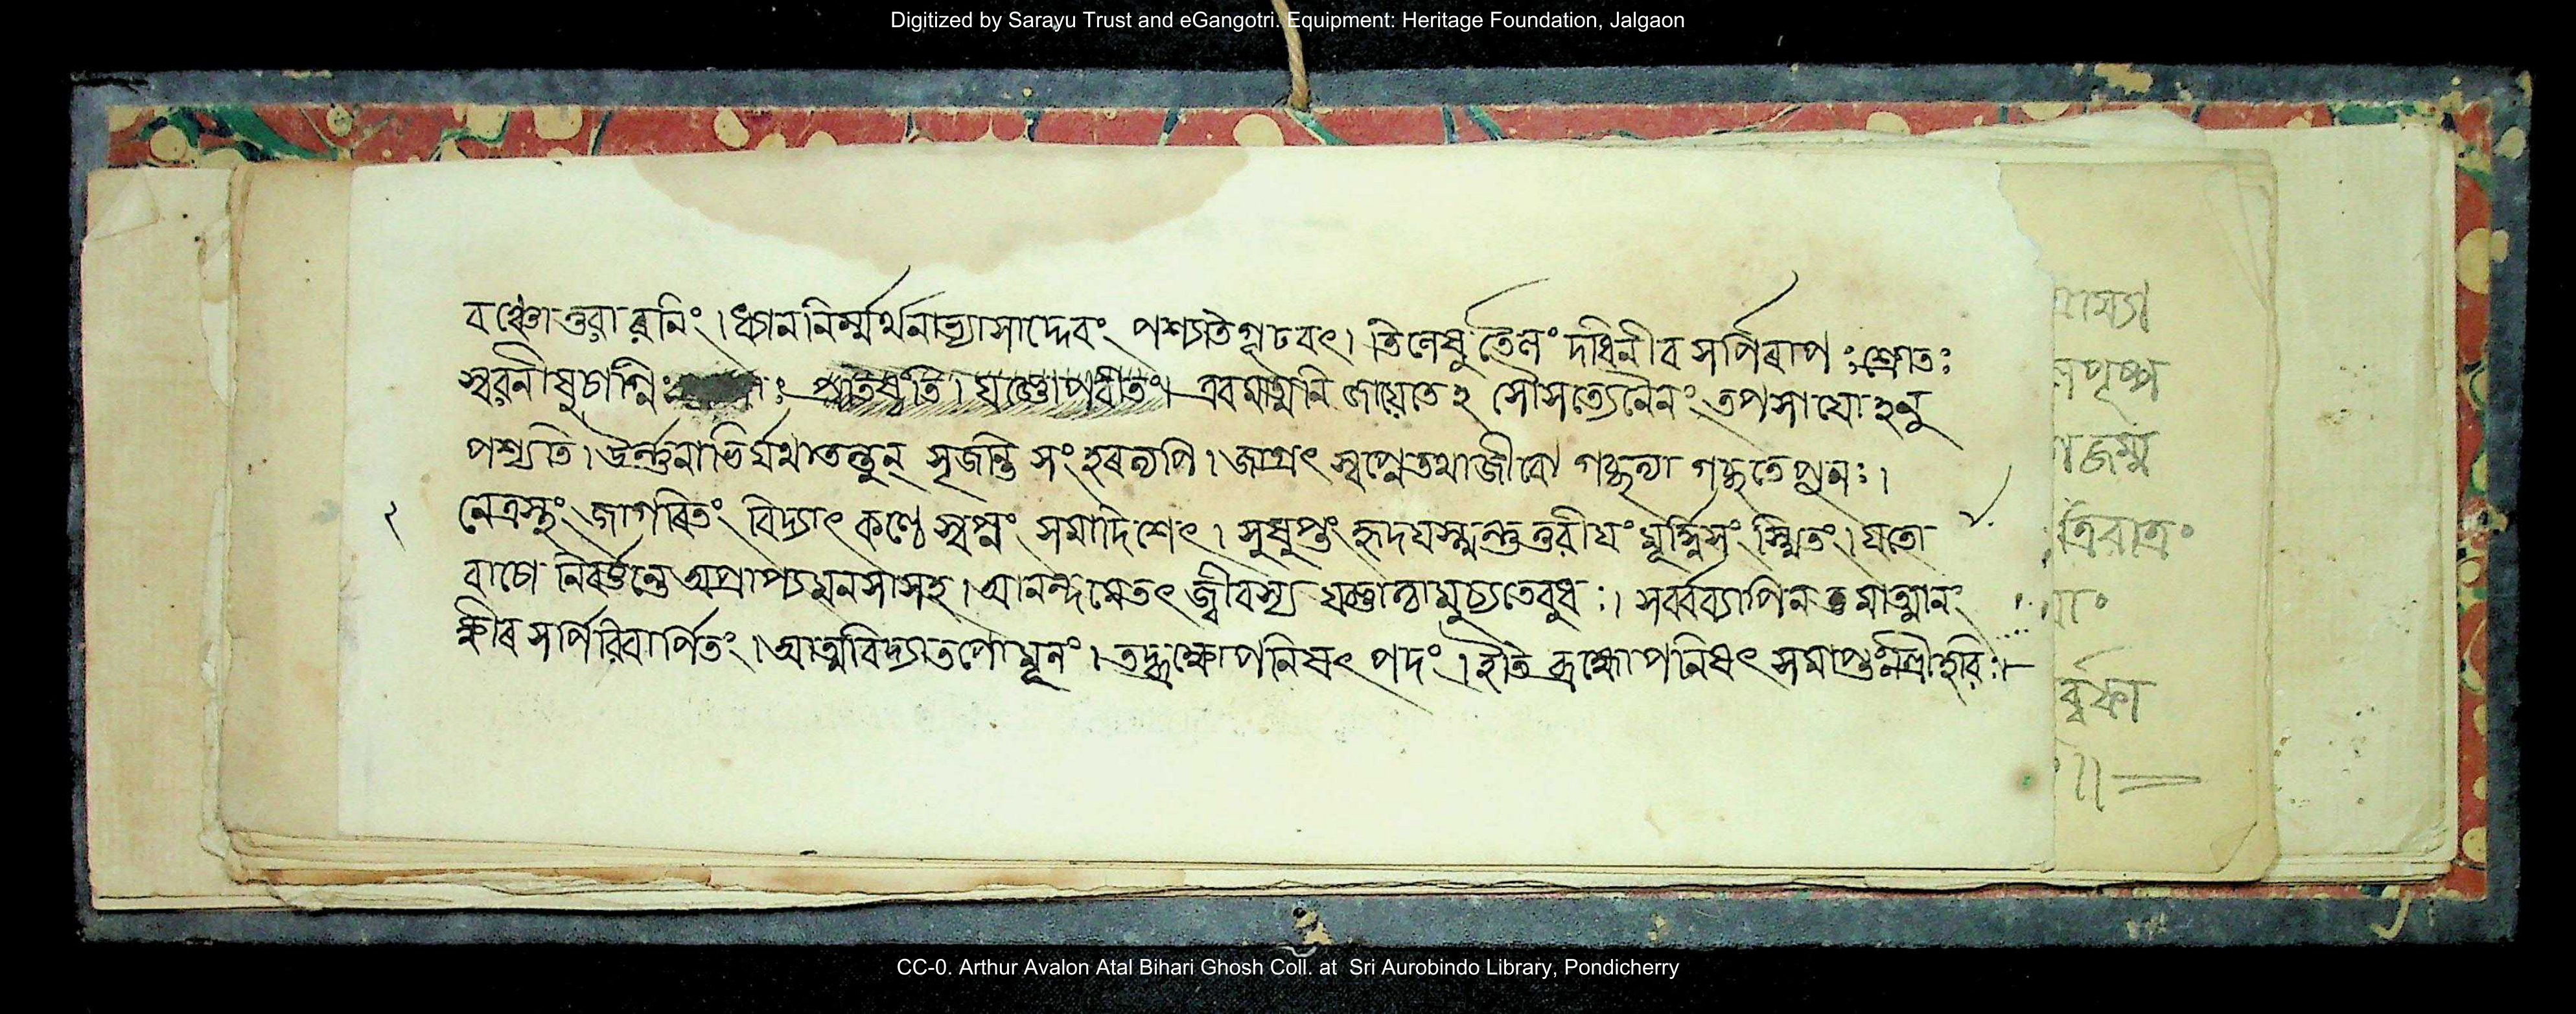 Digitized by Sarayu Trust and eGangotri. Equipment: Heritage Foundation, Jalgaon
ধ্যাননির্ম্মর্থনাভ্যাসাদ্দেবং পশ্যতি গূঢবৎ। তিলেষু তৈলং দধিনীব সর্পিৰাপঃ শ্রোতঃ
স্বরনীষুচাগ্নিঃ এবমাত্মনি জায়েতে ২ সৌসত্যেনৈনং তপসাযোহনু
পশ্যতি। ঊর্ন্নুনাভির্যথাতন্তুন্ সৃজন্তি সংহৰন্ত্যপি। জাগ্রৎ স্বপ্নেতথাজীবো গচ্ছত্যা গচ্ছতে পুনঃ।
২ নেত্রস্থং জাগৰিতং বিদ্যাৎ কণ্ঠে স্বপ্নং সমাদিশেৎ। সুষুপ্তং হৃদযস্থন্তু তুরীযং মূর্দ্ধ্নিসংস্থিতং। যতো
বাচো নিবর্ত্তন্তে অপ্রাপ্য মনসাসহ। আনন্দমেতৎ জীবস্য যজ্ঞাত্বামুচ্যতেবুধঃ। সর্ব্বব্যাপিন মাত্মানং
ক্ষীৰ সর্পিরিবার্পিতং। আত্মবিদ্যাতপোমূলং। তদ্ব্রহ্মোপনিষৎ পদং। ইতি ব্রহ্মোপনিষৎ সমাপ্ত শ্রীহরিঃ।
ত্রিরাত্রং
CC-0. Arthur Avalon Atal Bihari Ghosh Coll. at Sri Aurobindo Library, Pondicherry